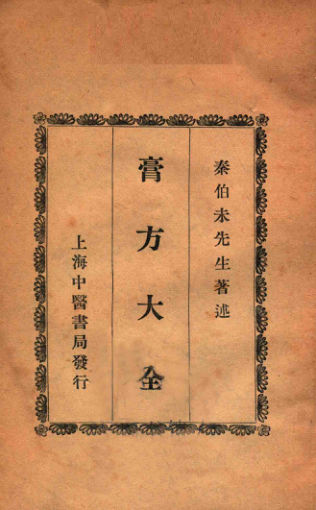 秦伯未先生著述
膏方大全
上海中醫書局發行